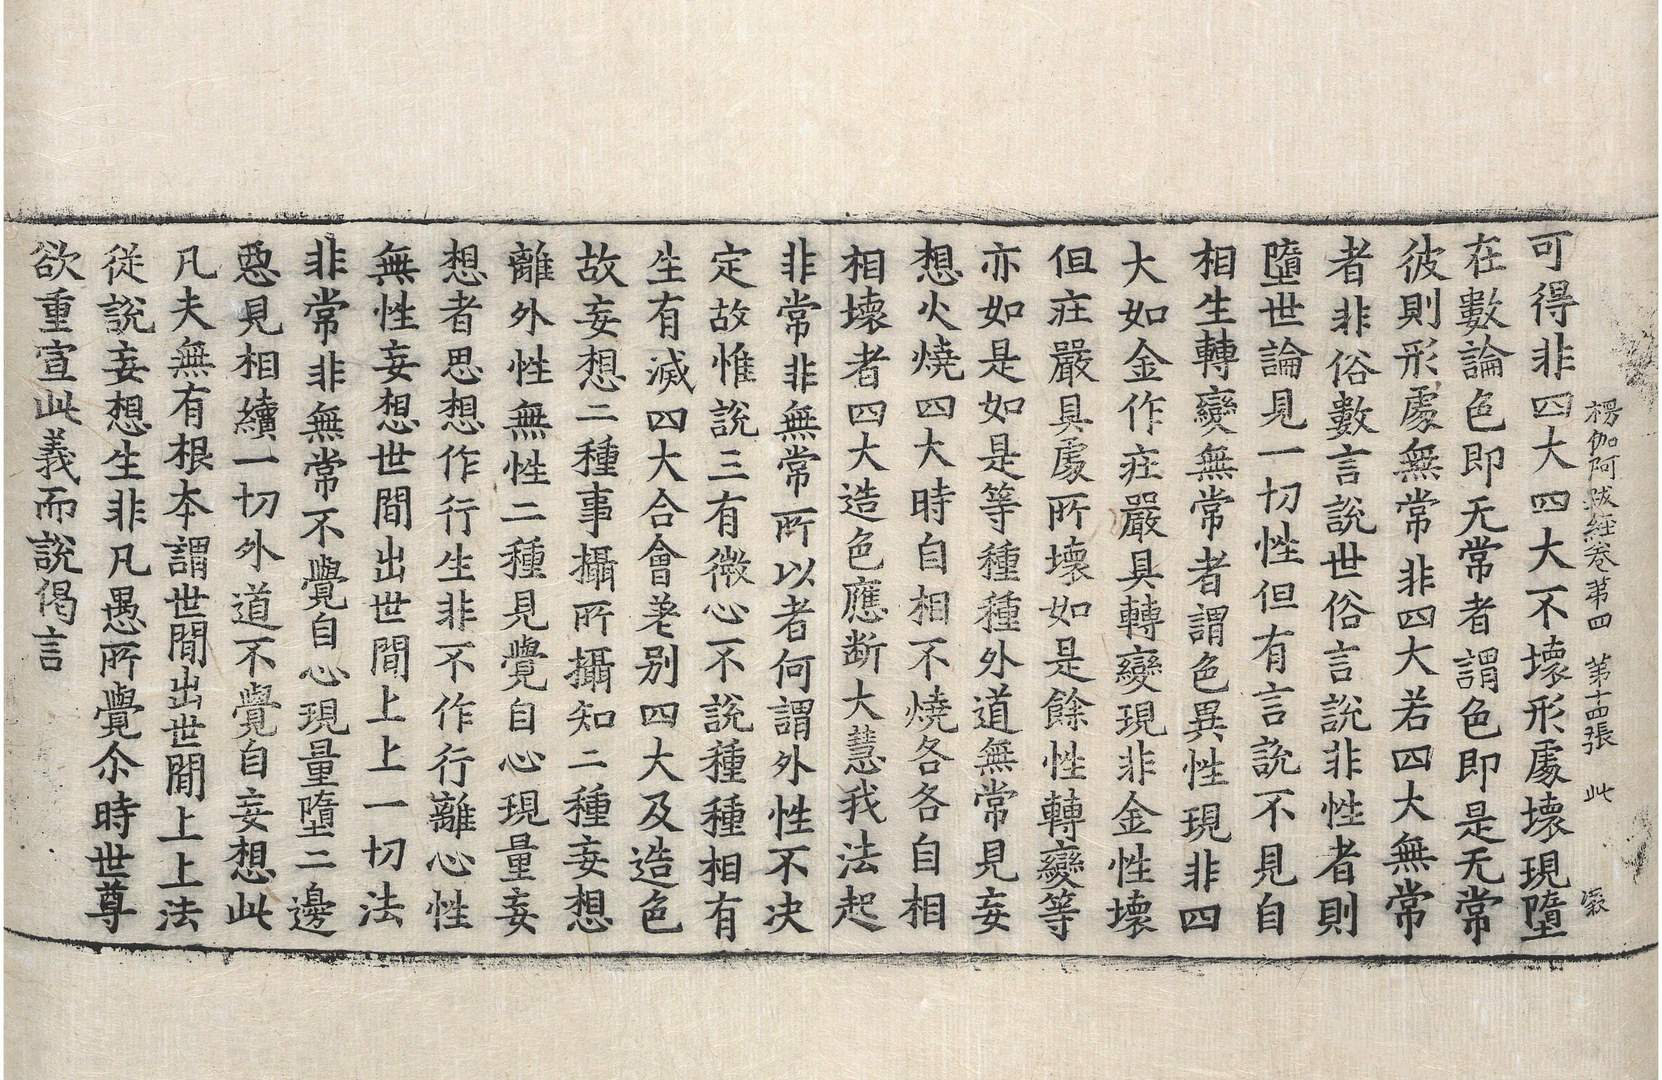 楞伽阿跋經卷第四　第十四張　此　巖
可得非四大四大不壞形處壞現墮
在數論色即无常者謂色即是无常
彼則形處無常非四大若四大無常
者非俗數言說世俗言說非性者則
墮世論見一切性但有言說不見自
相生轉變無常者謂色異性現非四
大如金作庄嚴具轉變現非金性壞
但庄嚴具處所壞如是餘性轉變等
亦如是如是等種種外道無常見妄
想火燒四大時自相不燒各各自相
相壞者四大造色應断大慧我法起
非常非無常所以者何謂外性不决
定故惟說三有微心不說種種相有
生有滅四大合會差别四大及造色
故妄想二種事攝所攝知二種妄想
離外性無性二種見覺自心現量妄
想者思想作行生非不作行離心性
無性妄想世間出世間上上一切法
非常非無常不覺自心現量墮二邊
惡見相續一切外道不覺自妄想此
凡夫無有根本謂世間出世間上上法
從說妄想生非凡愚所覺尒時世尊
欲重宣此義而說偈言